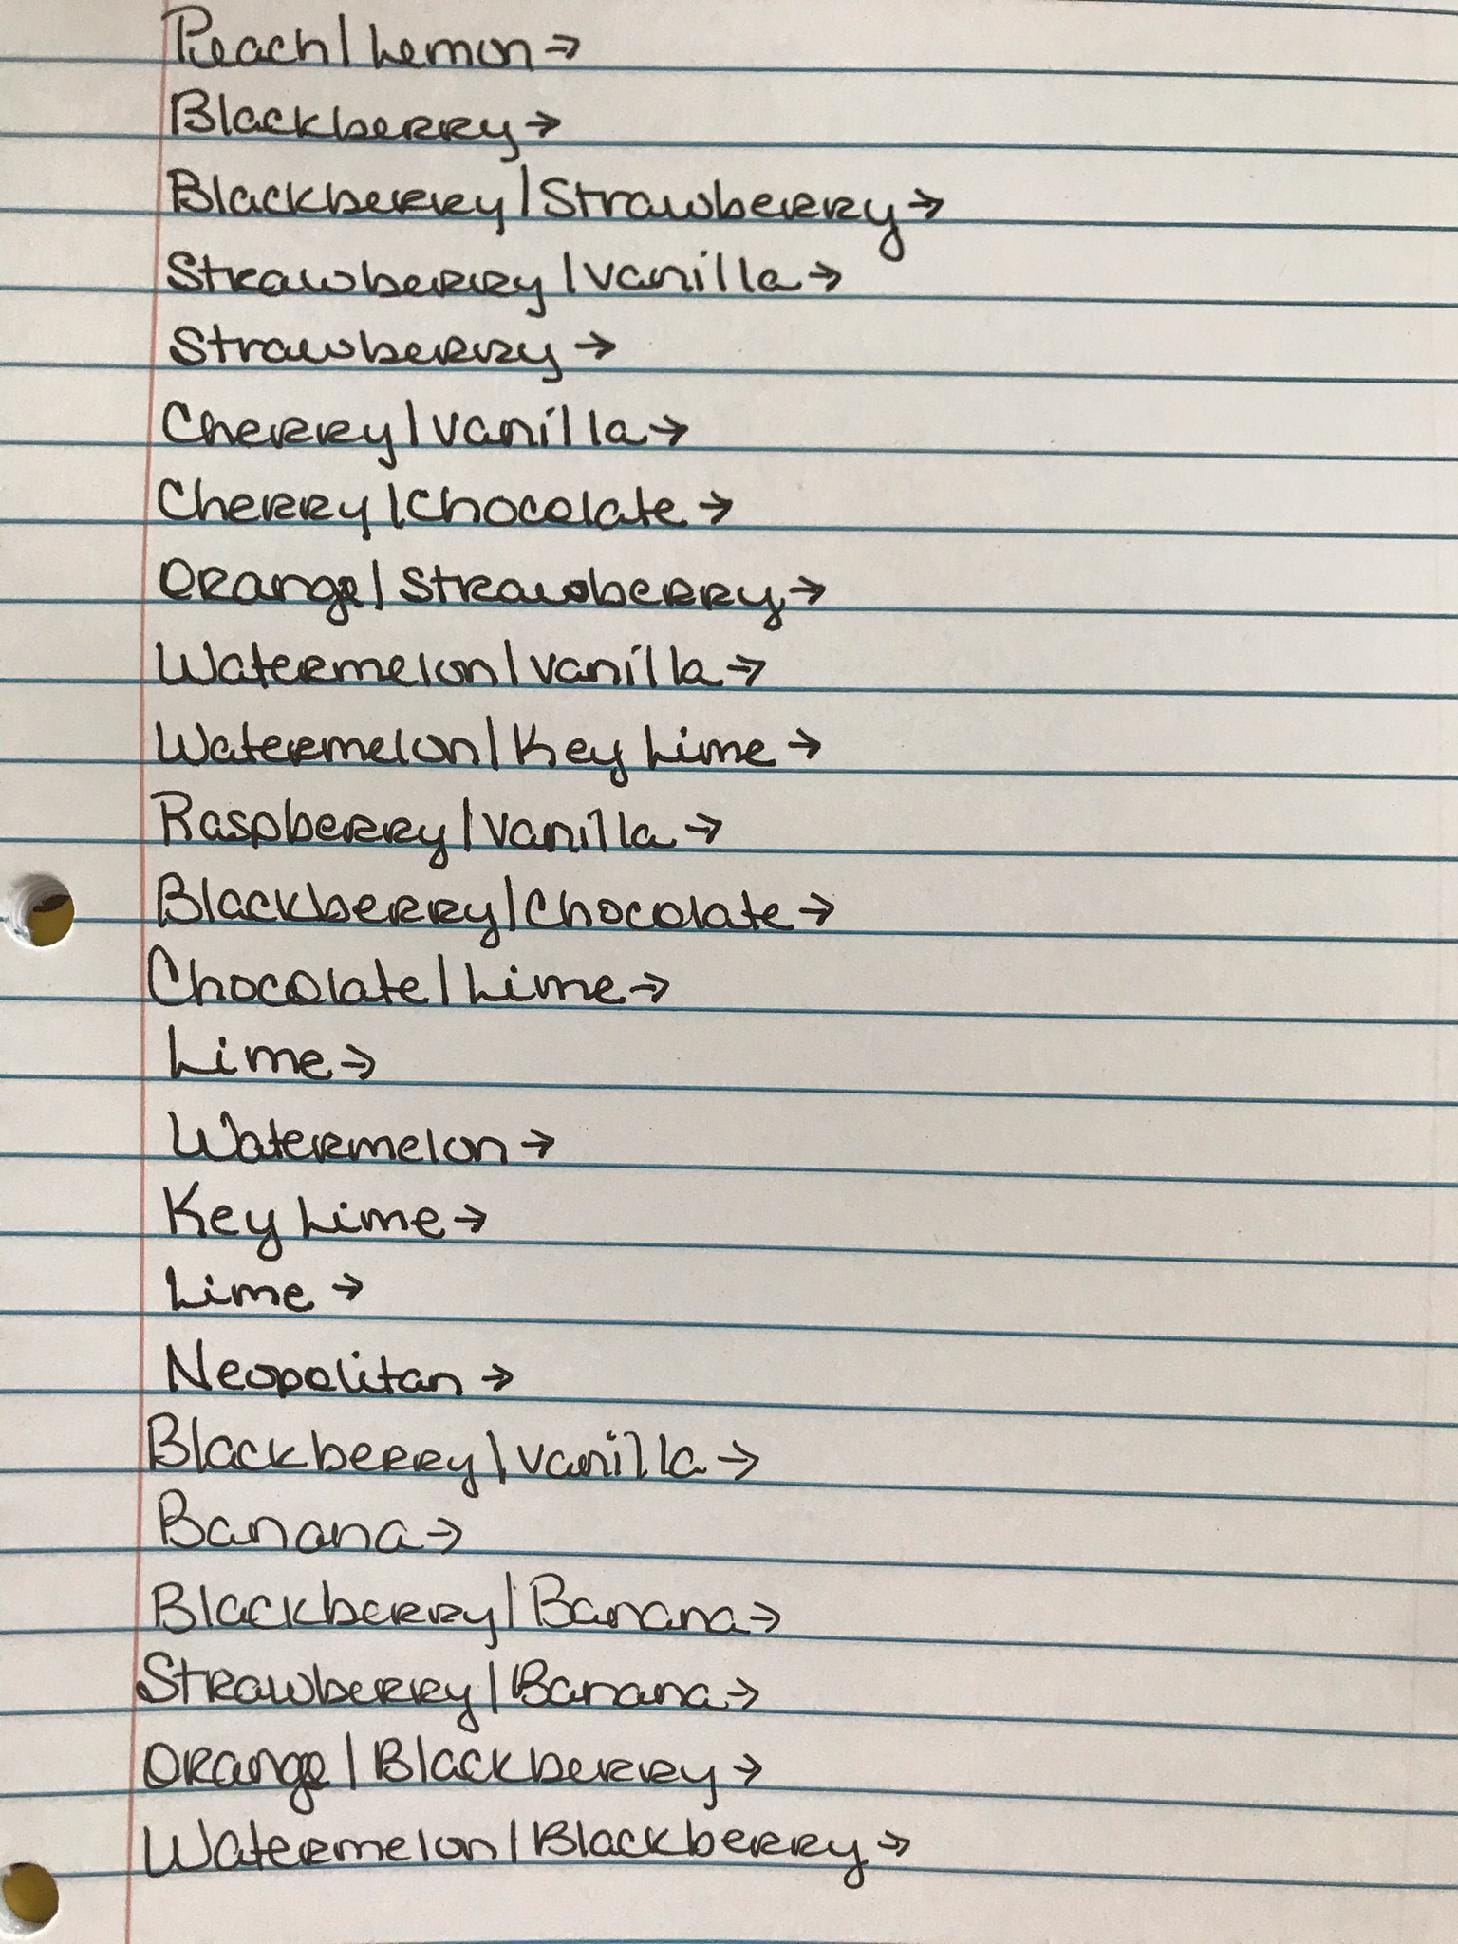 Peach/Lemon→
Blackberry→
Blackberry/Strawberry→
Strawberry/Vanilla→
Strawberry→
Cherry/Vanilla→
Cherry/Chocolate→
Orange/Strawberry→
Watermelon/Vanilla→
Watermelon/Key Lime→
Raspberry/Vanilla→
Blackberry/Chocolate→
Chocolate/Lime→
Lime→
Watermelon→
Key Lime→
Lime→
Neopolitan→
Blackberry\Vanilla→
Banana→
Blackberry/Banana→
Strawberry/Banana→
Orange/Blackberry→
Watermelon/Blackberry→